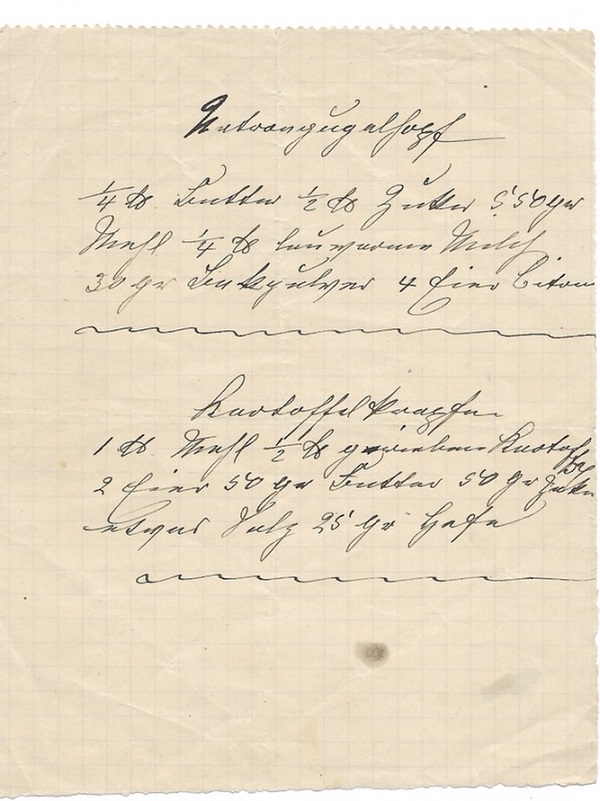 Natrongugelhopf
1/4 ℔ Butter 1/2 ℔ Zucker 550 gr
Mehl 1/4 ℔ lauwarme Milch
30 gr Backpulver 4 Eier Citron
Kartoffelkrapfen
1 ℔ Mehl 1/2 ℔ geriebene Kartoffel
2 Eier 50 gr Butter 50 gr Zucker
etwas Salz 25 gr Hefe